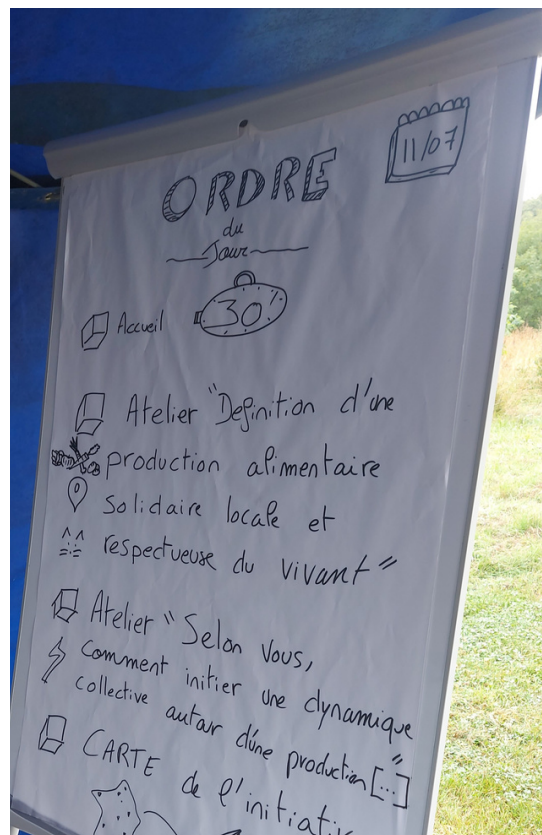 11/07
ORDRE
du
Jour
Accueil 30'
Atelier "Definition d'une
production alimentaire
Solidaire locale et
respectueuse du vivant"
Atelier "Selon Vous,
Comment initier une dynamique
collective autour d'une production [...]"
CARTE de l'initiativ